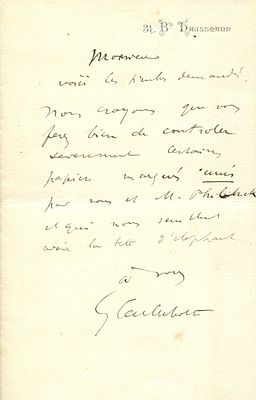 31, Bd Haussmann
Monsieur
voici les timbres demandés.
Nous croyons que vous
ferez bien de controler
severement certains
papier marqués unis
par vous et M. Philbrick
et qui nous semblent
avoir la tete d'elephant
à vous
G Caillebotte